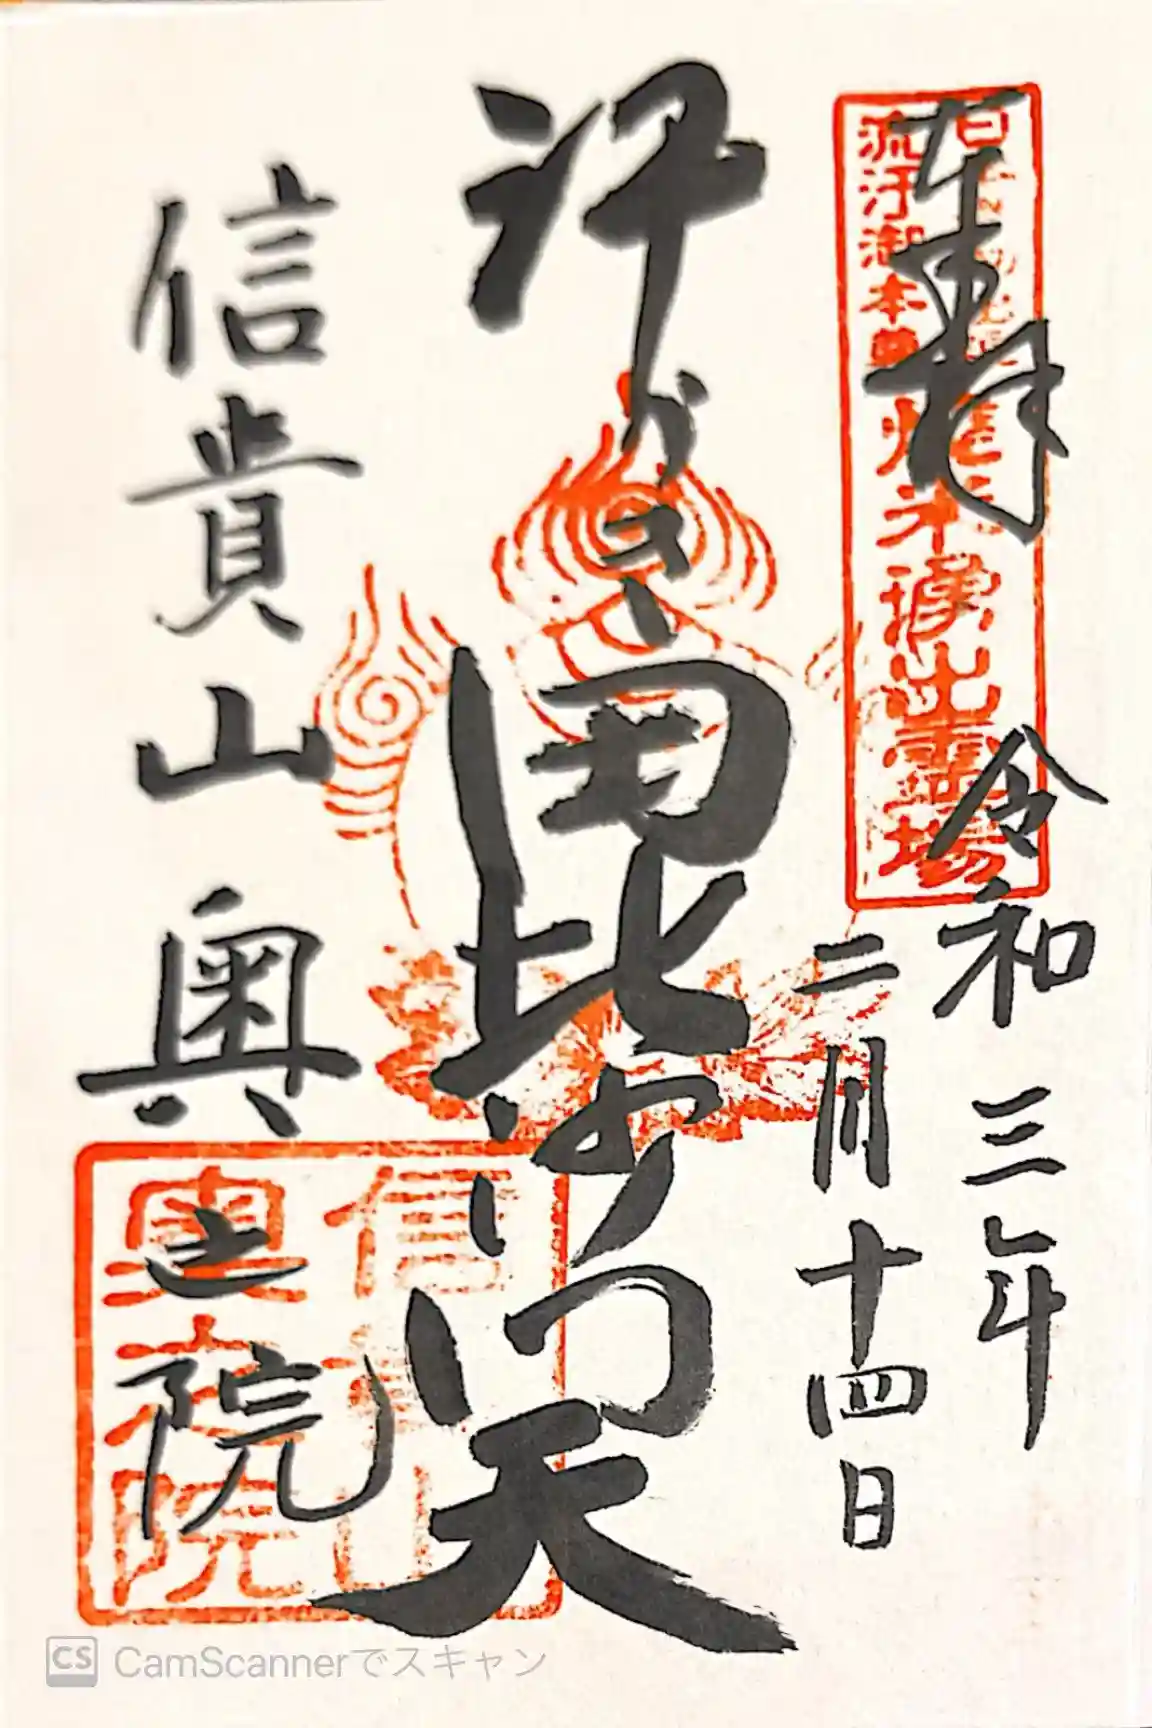 奉拝
流汗御本尊
焼米湧出霊場
令和三年
二月十四日
汗かき
毘沙門天
信貴山奥之院
信貴山
奥之院
CS CamScannerでスキャン